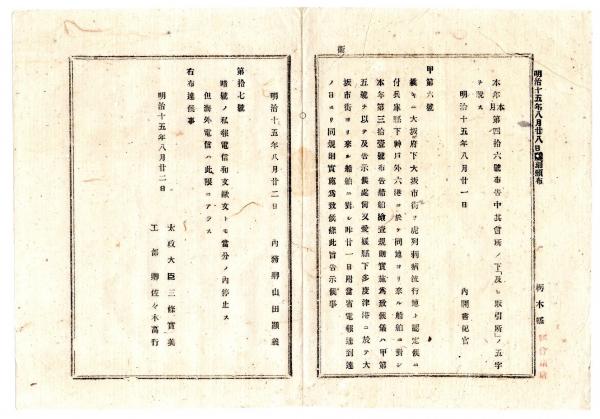 明治十五年八月廿八日 頒布
栃木縣
本年本月第四拾六號布告中其會所ノ下「及ヒ取引所」ノ五字
ヲ脱ス
明治十五年八月廿一日
內閣書記官
衛
甲第六號
繼キニ大坂府下大坂市街ヲ虎列剌病流行地ト認定候ニ
付兵庫縣下神戸外六港ニ於テ同地ヨリ來ル船舶ニ對シ
本年第三拾壹號布告船舶檢查規則實施爲致候儀ハ甲第
五號ヲ以テ及告示候處尙又愛媛縣下多度津港ニ於テ大
坂市街ヨリ來ル船舶ニ對シ昨廿一日附當省電報達到達
ノ日ヨリ同規則實施爲致候條此旨告示候事
明治十五年八月廿二日
內務卿山田顯義
第拾七號
暗號ノ私報電信和文歐文トモ當分ノ內停止ス
但海外電信ハ此限ニアラス
右布達候事
明治十五年八月廿二日
太政大臣三條實美
工部卿佐々木高行